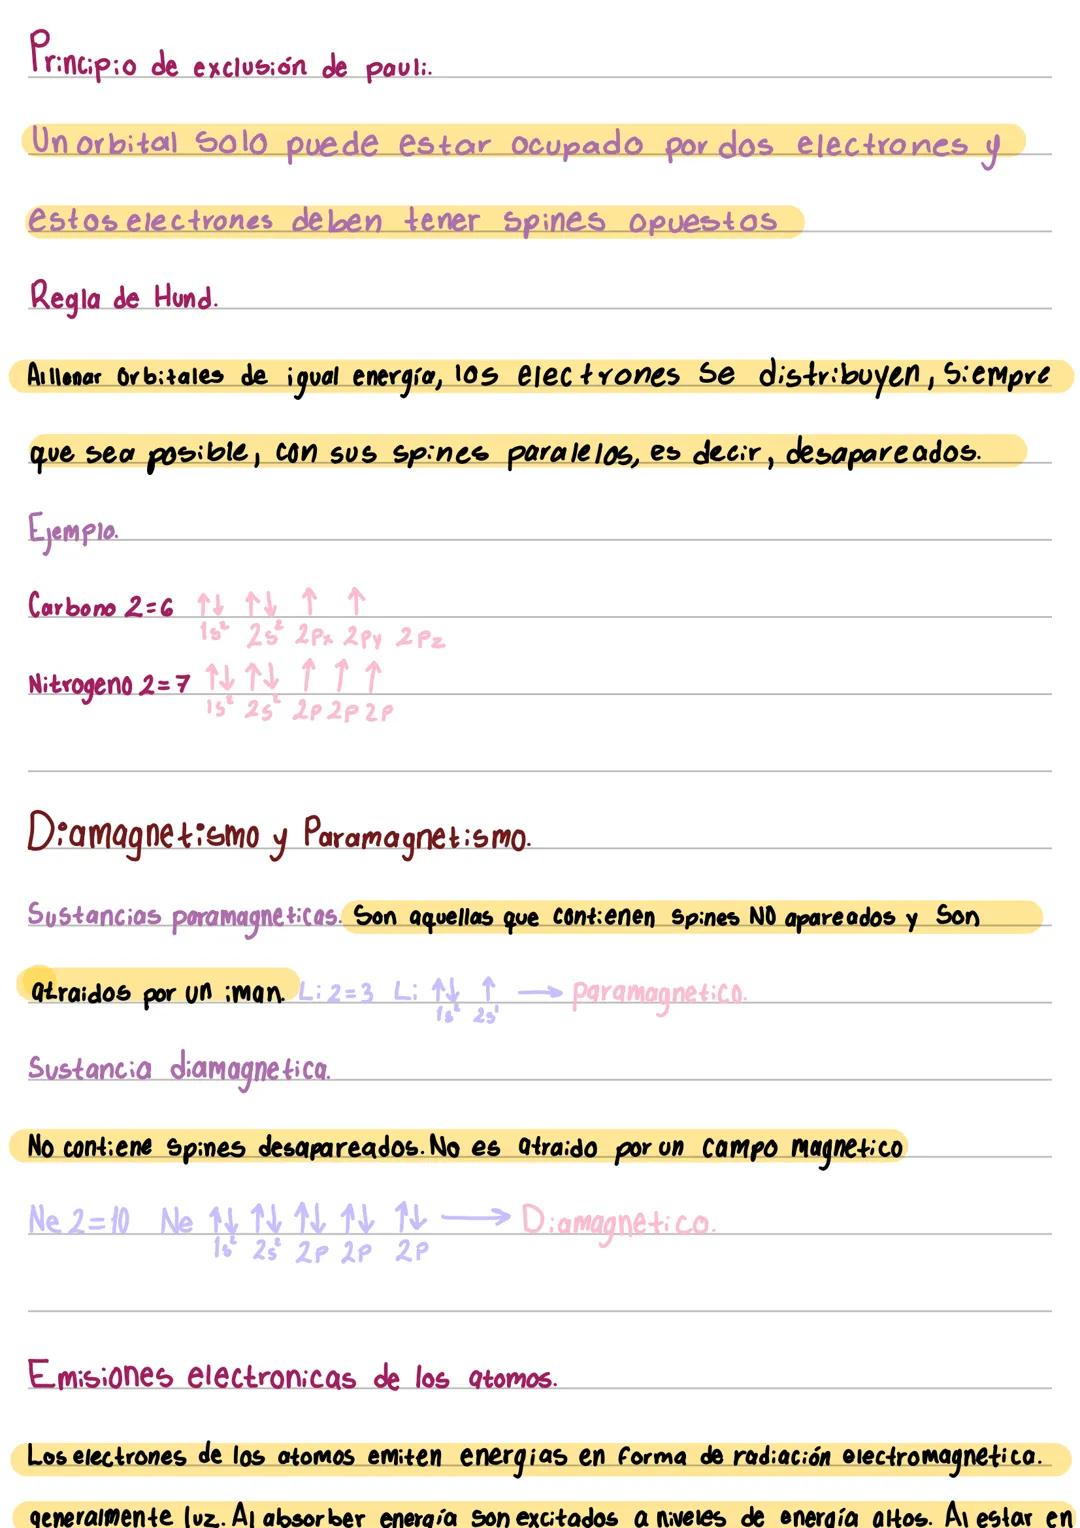 Principio de exclusión de pauli.
Un orbital solo puede estar ocupado por dos electrones y
estos electrones deben tener spines opuestos
Regla de Hund.
Al llenar orbitales de igual energía, los electrones se distribuyen, siempre
que sea posible, con sus spines paralelos, es decir, desapareados.
Ejemplo.
Carbono 2=6 ↑↓ ↑↓ ↑ ↑
1s² 2s² 2px 2py 2pz
Nitrogeno 2=7 ↑↓ ↑↓ ↑ ↑ ↑
1s² 2s² 2p 2p 2p
Diamagnetismo y Paramagnetismo.
Sustancias paramagneticas. Son aquellas que contienen spines NO apareados y son
atraidos por un iman. Li 2=3 Li ↑↓ ↑ → paramagnetico.
1s² 2s¹
Sustancia diamagnetica.
No contiene spines desapareados. No es atraido por un campo magnetico
Ne 2=10 Ne ↑↓ ↑↓ ↑↓ ↑↓ ↑↓ → Diamagnetico.
1s² 2s² 2p 2p 2p
Emisiones electronicas de los atomos.
Los electrones de los atomos emiten energias en forma de radiación electromagnetica.
generalmente luz. Al absorber energía son excitados a niveles de energía altos. Al estar en